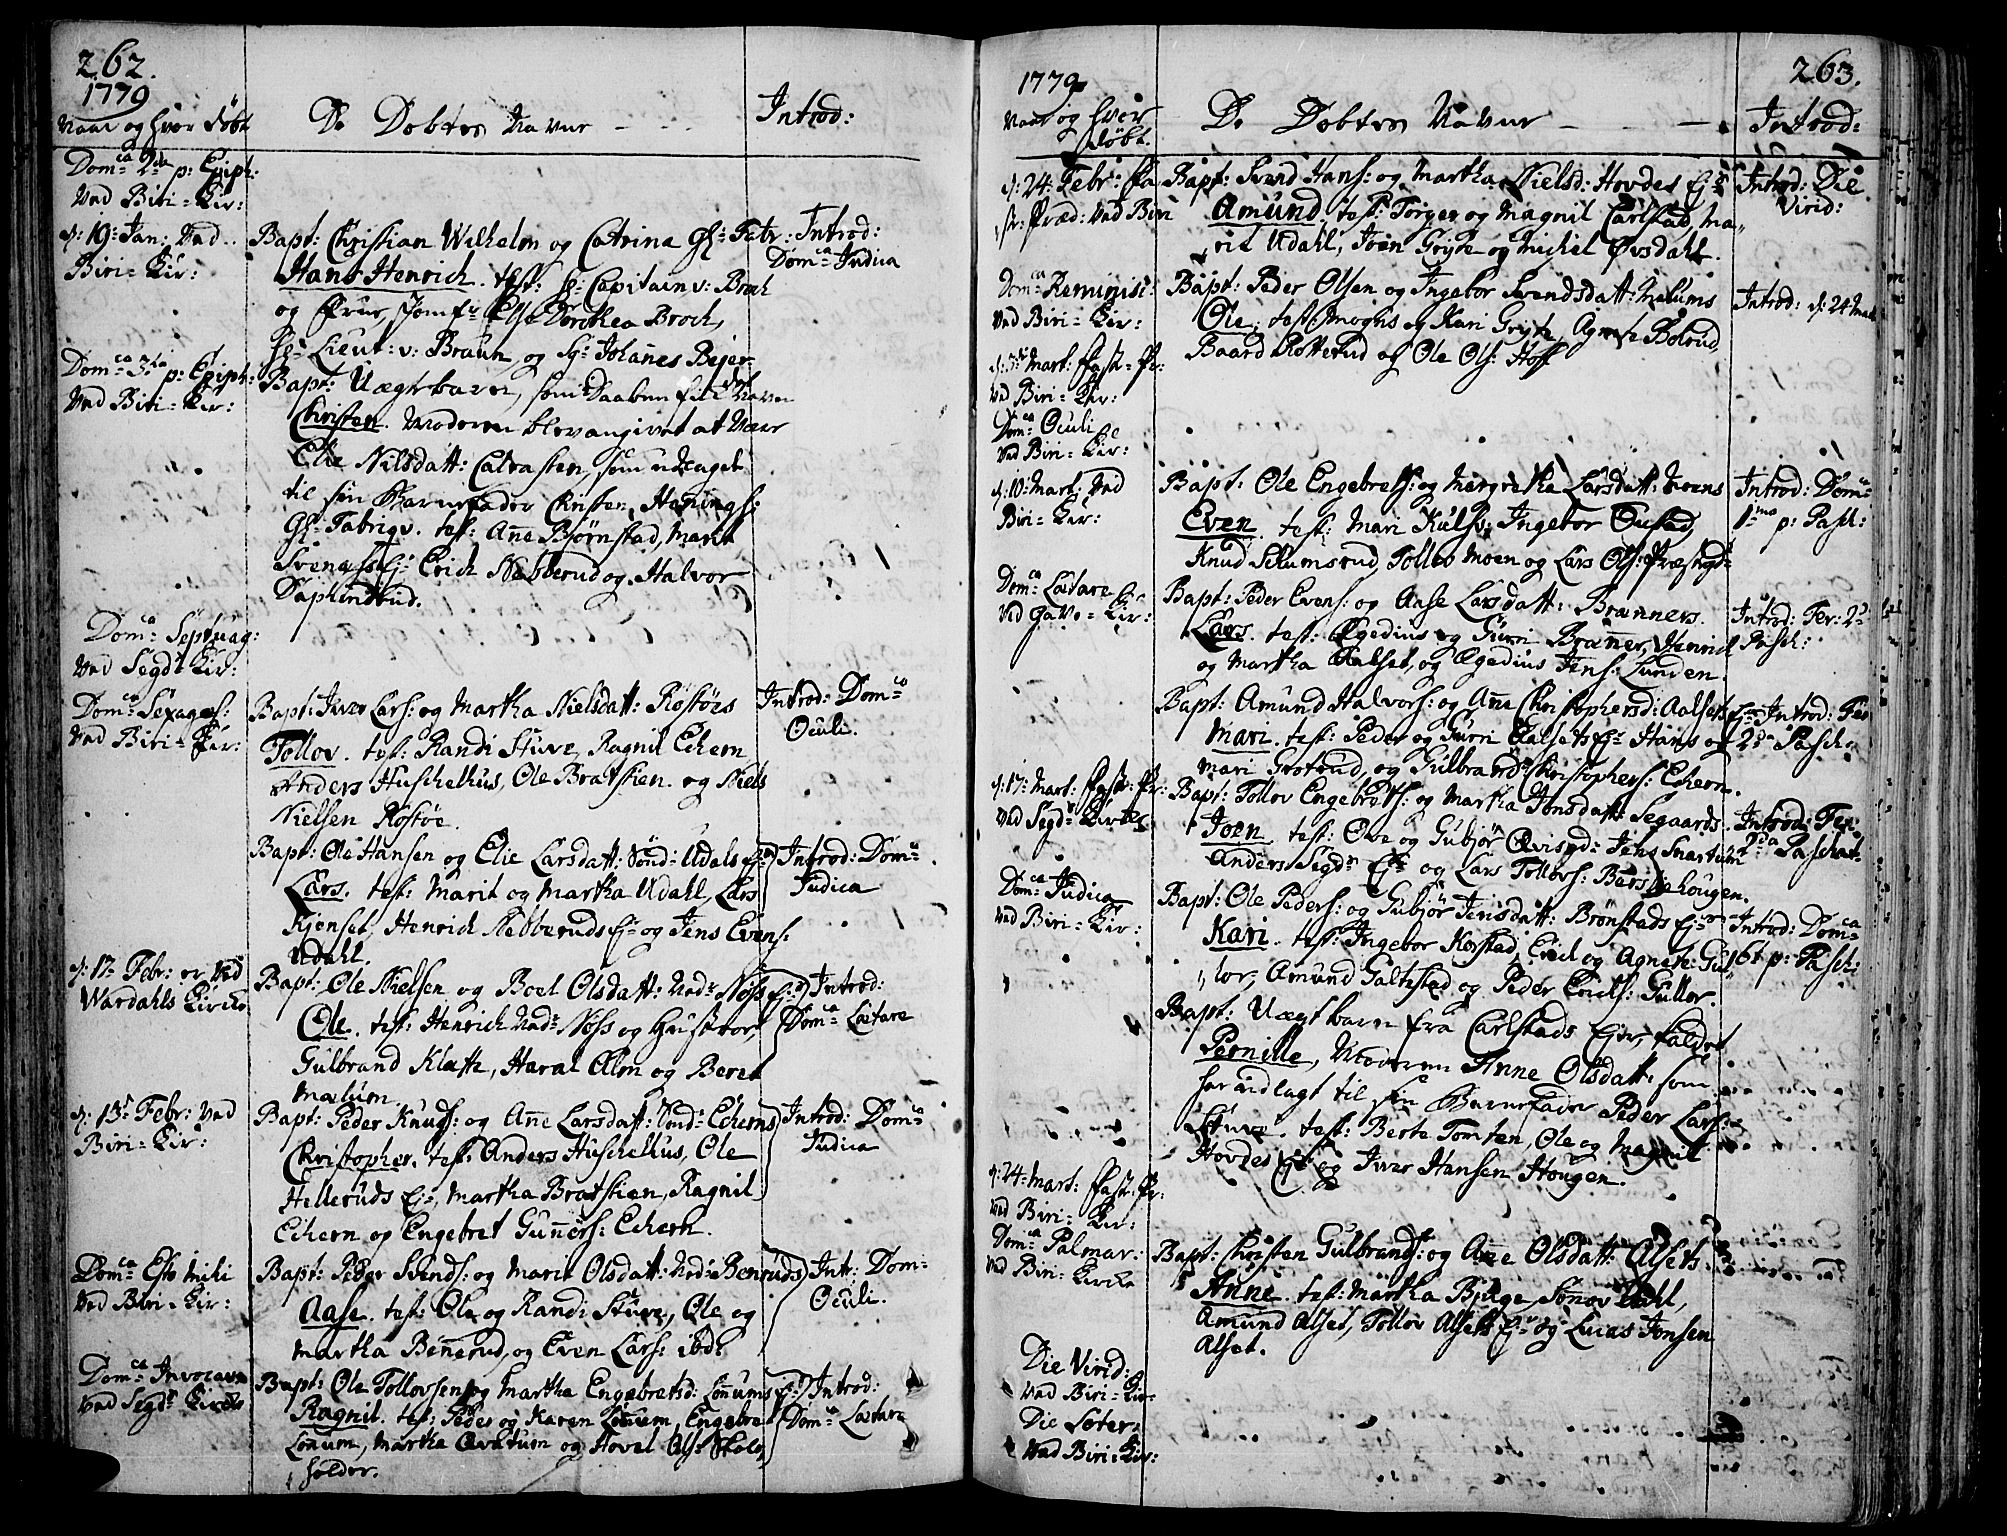 262.
1779
Naar og hvor døbt
De Døbtes Navne
Introd:
Dom:ca 2da p: Epiph:
Ved Biri-Kir:
d: 19: Jan: Ved
Biri-Kir:
Bapt: Christian Wilhelm og Catrina Gl: Fabr:
Hans Henrich. test: Hr Capitain v: Broch
og Frue, Jomfr Else Dorothea Broch,
Hr Lieut: v: Braun, og Sr Johanes Bejer
Introd:
Dom:ca Judica
Dom:ca 3tia p: Epiph:
Ved Biri-Kir:
Bapt: Uægte barn, som i Daaben fik Navn
Christen. Moderen blev angivet at være
Elie Nilsdatt: Calrasten, som udlagt
til sin Barnefader Christen Hanings:
Gl: Fabriqv. test: Ane Bjørnstad, Marit
Svenæs Ej: Erich Nebberud og Halvor
Saphindrud.
Dom:ca Septuag:
Ved Segd: Kir:
Dom:ca Sexages:
Ved Biri-Kir:
Bapt: Iver Lars: og Martha Nielsdatt: Røstøes
Tollov. test: Randi Stuve, Ragnil Echern
Anders Huschelhus, Ole Bratstien og Niels
Nielsen Rostøe.
Introd: Dom:ca
Oculi.
Bapt: Ole Hansen og Elie Larsdatt: Sønd: Udals Ej:
Lars. test: Marit og Martha Udahl, Lars
Kjenset, Henrich Nebberuds Ej: og Jens Evens:
Udahl.
Introd: Dom:ca
Judica
d: 12 Febr: er Ved
Wardahls Kirche
Bapt: Ole Nielsen og Boel Olsdatt: Ned: Nøss Ej:
Ole. test: Henrich Ned: Nøss og Hustror,
Gulbrand Klætte, Haral Ælm og Beret
Mælum.
Introd:
Dom:ca Lætare
d: 13 Febr: Ved
Biri-Kir:
Bapt: Peder Knuds: og Ane Larsdatt: Sønd: Echerns
Christopher. test: Anders Huschelhus, Ole
Hilleruds Ej:, Martha Bratstien, Ragnil
Echern og Engebret Gunners: Echern.
Introd: Dom:ca
Judica
Dom:ca Esto mihi
Ved Biri-Kir:
Bapt: Peder Svends: og Marit Olsdatt: Ned: Benruds
Aase. test: Ole og Randi Stuve, Ole og
Martha Benerud, og Even Lars: ibd:
Intr: Dom:
Oculi.
Dom:ca Invocavit
Ved Segd: Kirche
Bapt: Ole Tollovsen og Martha Engebretsd: Lønums Ej:
Ragnil. test: Peder og Karen Lønum, Engebret
Lønum, Martha Øvatum og Hovel Ols: Skole,
holder.
Introd:
Dom:ca Lætare
1779
263.
Naar og hvor
døbt.
De Døbtes Navne
Introd:
d: 24: Febr: Fa
st: Præd: Ved Biri
Bapt: Svend Hans: og Martha Nielsd: Hovdes Ej:
Amund. test: Torger og Magnil Carlstad, Ma,,
rit Udahl, Joen Gryte og Michel Øvsdahl.
Introd: Die
Virid:
Dom:ca Reminisc:
Ved Biri-Kir:
Bapt: Peder Olsen og Ingebor Svendsdatt: Mælums
Ole. test: Moghs og Kari Gryte, Agnete Bolrud,
Baard Rotterud og Ole Ols: Hoff
Introd: d: 24 Mart
d: 3 Mart: Fast-Pr:
Ved Biri-Kir:
Dom:ca Oculi
Ved Biri-Kir:
d: 10: Mart: Ved
Biri-Kir:
Bapt: Ole Engebrets: og Margretha Larsdatt: Moens
Even. test: Mari Kulsv: Ingebor Ousta,
Knud Schumsrud, Tollov Moen og Lars Ols: Præstgd:
Introd: Dom:ca
1ma p: Pasch:
Dom:ca Lætare
Ved Gave-Kir:
Bapt: Peder Evens: og Anse Larsdatt: Brænners.
Lars. test: Ægedius og Gurri Bræner, Henrich
og Martha Aalset, og Ægedius Jens: Lunden
Introd: Fer: 2da
Pasch:
Bapt: Amund Halvors: og Ane Christophersd: Aalsets Ej:
Mari. test: Peder og Gurri Aalsets Ej: Hans og
Mari Grøtrud og Gulbrand Christophers: Echern.
Introd: Fer
2da Pasch:
d: 17: Mart: Fast-Pr:
Ved Segd: Kirke
Bapt: Tollov Engebrets: og Martha Jonsdatt: Segaards.
Joen test: Ove og Gubjør Ovisgd: Jens Snartum
Anders Segd: Ej: og Lars Tollovs: Børstihougen.
Introd: Fer.
2da Paschat:
Dom:ca Judica
Ved Biri-Kir:
Bapt: Ole Peders: og Gubjør Jensdatt: Brønstads Ej:
Kari. test: Ingebor Korstad, Erich og Agnete Gul,
lor, Amund Galtestad og Peder Erichs: Gullor.
Introd: Dom:ca
6t p: Pasch:
Bapt: Uægte barn fra Carlstads Ejer, kaldet
Pernille, Moderen Anne Olsdatt: som
har udlagt til sin Barnefader Peder Lars:
Stuve. test: Berte Tomten, Ole og Magnil
Hovdes Ej: og Iver Hansen Hougen.
d: 24: Mart: Fast: Pr:
Ved Biri-Kir:
Dom:ca Palmar:
Ved Biri-Kirche
Bapt: Christen Gulbrands: og Ane Olsdatt: Alsets
Anne. test: Martha Bjøge, Sønov Dahl,
Amund Alset, Tollov Alsets Ej: og Lucas Jonsen
Alset.
Die Virid:
Ved Biri-Kir:
Die Soter:
Ved Biri-Kir: